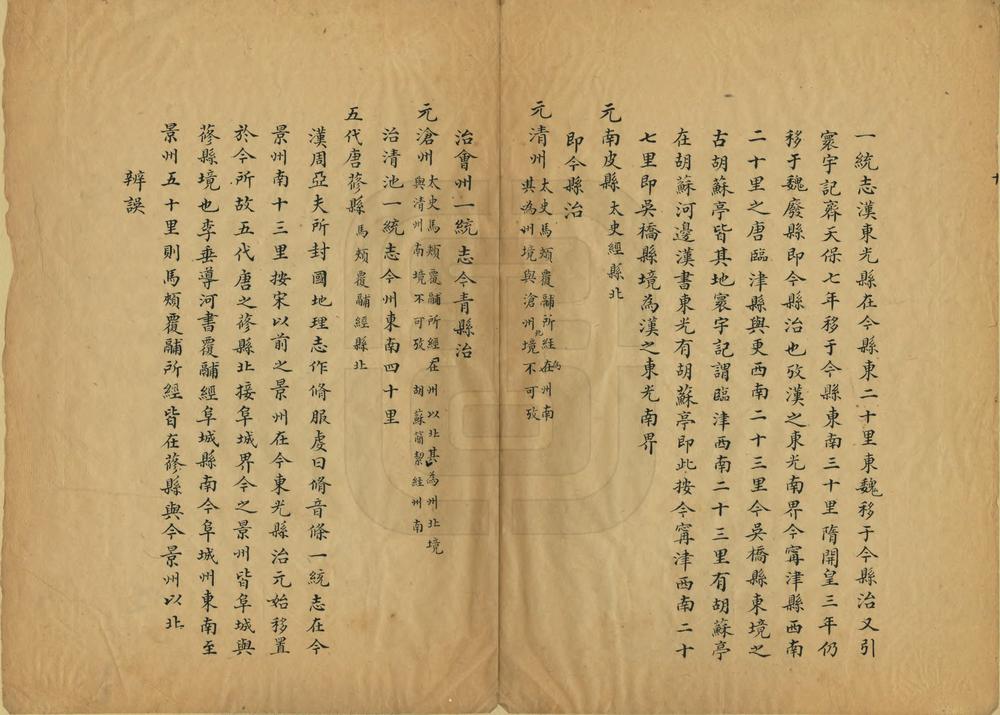 一統志漢東光縣在今縣東二十里東魏移于今縣治又引
寰宇記齊天保七年移于今縣東南三十里隋開皇三年仍
移于魏廢縣即今縣治也攷漢之東光南界今寗津縣西南
二十里之唐臨津縣與更西南二十三里今吳橋縣東境之
古胡蘇亭皆其地寰宇記謂臨津西南二十三里有胡蘇亭
在胡蘇河邊漢書東光有胡蘇亭即此按今寗津西南二十
七里即吳橋縣境為漢之東光南界
元南皮縣太史經縣北
即今縣治
元清州太史馬頰覆鬴所經在州南
其為州境與滄州北境不可攷
治會州一統志今青縣治
元滄州太史馬頰覆鬴所經在州以北其為州北境
與清州南境不可攷 胡蘇簡絜經州南
治清池一統志今州東南四十里
五代唐蓚縣馬頰覆鬴經縣北
漢周亞夫所封國地理志作脩服虔曰脩音條一統志在今
景州南十三里按宋以前之景州在今東光縣治元始移置
於今所故五代唐之蓚縣北接阜城界今之景州皆阜城與
蓚縣境也李垂導河書覆鬴經阜城縣南今阜城州東南至
景州五十里則馬頰覆鬴所經皆在蓚縣與今景州以北
辨誤